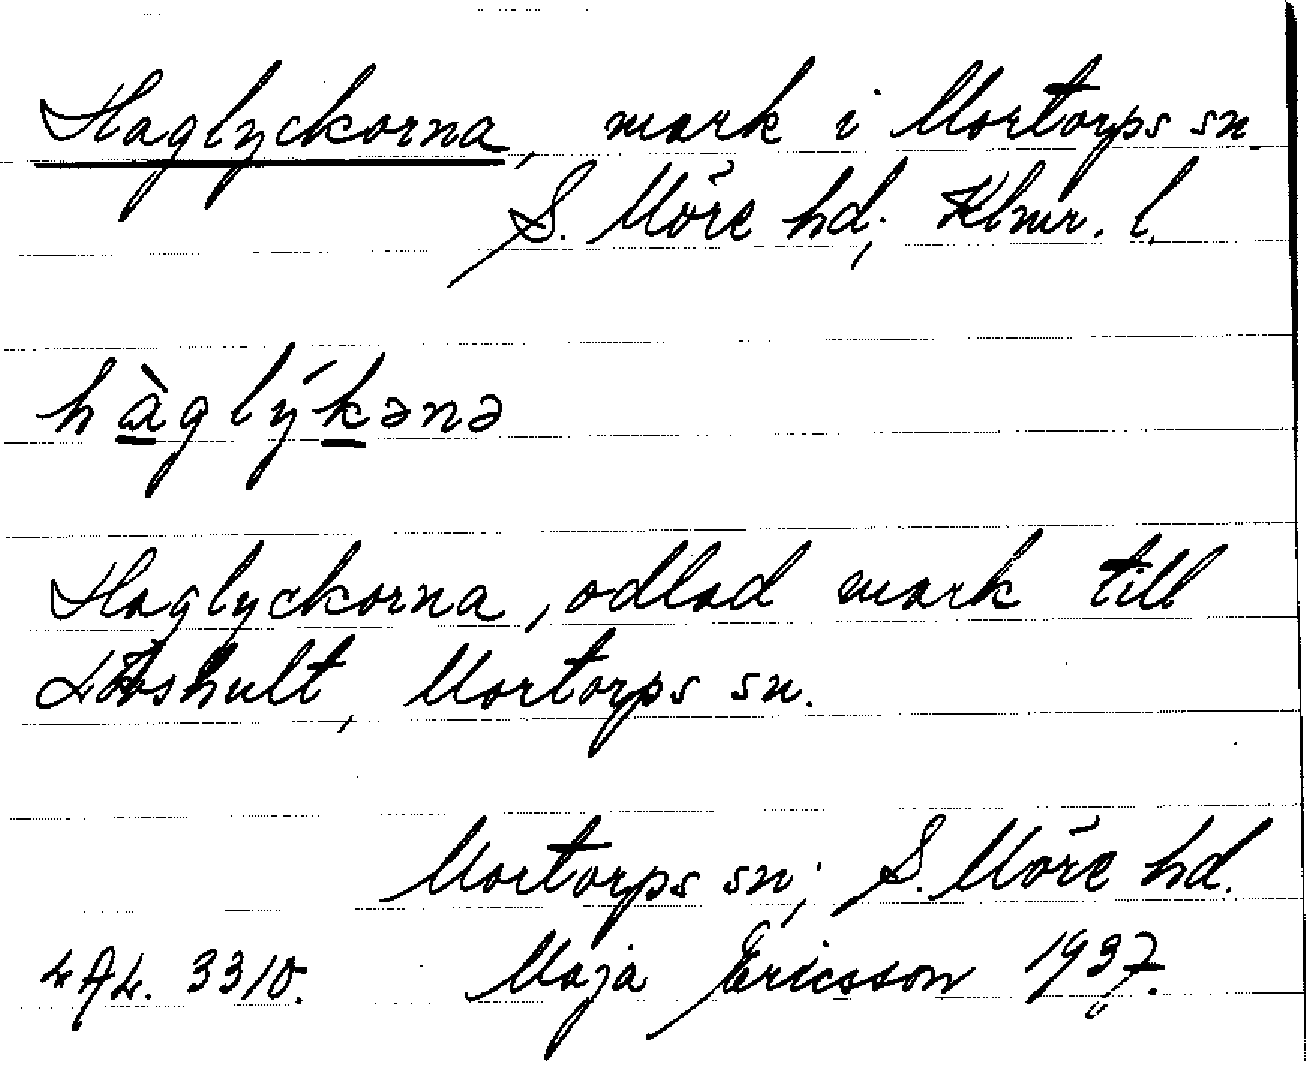 Haglyckorna, mark i Mortorps sn.
S. Möre hd; Klmr. l.
hàglýkənə
Haglyckorna, odlad mark till
Mortorps sn.
Mortorps sn; S. Möre hd.
4AL. 3310. Maja Ericsson 1937.